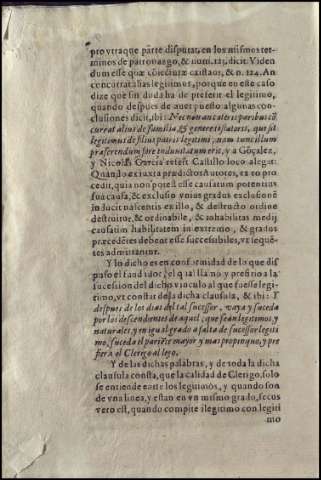 pro vtraque parte disputat, en los mismos ter-
minos de patronazgo, & num. 123. dicit. Viden
dum esse quæ cōiecturæ exístant, & n. 124. An
concurrat alias legitimos, porque en este caso
dize que sin duda ha de preferir el legitimo,
quando despues de auer puesto algunas con-
clusiones dicit, ibi: Nec non an cæteris paribus cō
currat alius de familia, & genere testatoris, qui sit
legitimus de filius patris legitimi, nam tunc illum
præferendum fore indunitatum erit, y a Gonçalez,
y Nicolas Garcia refert Castillo loco alegat.
Quando ex iuxta prædictos Autores, ex eo pro
cedit, quia non potest esse causatum potentius
sua causa, & excluso vnius gradus exclusione
inducit nascentis ex illo, & destructo ordine
destruitur, & ordinabile, & inhabilitas medij
causat inhabilitatem in extremo, & gradus
præcedētes debent esse successibiles, vt seque-
tes admittantur.
Y lo dicho es en conformidad de lo que dis
puso el fundador, el qual llamò y prefirio a la
sucession del dicho vinculo al que fuesse legi-
timo, vt constat de la dicha clausula, & ibi: Y
despues de los dias del tal sucessor, vaya y suceda
por los descendientes de aquel, que sean legitimos, y
naturales, y en igual grado a falta de sucessor legiti
mo, suceda el pariēte mayor y mas propinquo, y pre
fiera el Clerigo al lego.
Y de las dichas palabras, y de toda la dicha
clausula consta, que la calidad de Clerigo, solo
se entiende entre los legitimos, y quando son
de vna linea, y estan en vn mismo grado, secus
vero est, quando compite ilegitimo con legiti
mo